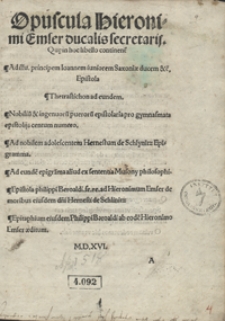 Opuscula Hieronimi
mi Emser ducalis secretarij.
Que in hoc libello continent᷑
¶Ad illu. principem Ioannem iuniorem Saxonie ducem &c̃.
Epistola
Themistichon ad eundem.
¶Nobiliũ & ingenuorũ puerorũ epistolaria pro gymnasmata
epistolijs centum numero.
¶Ad nobilem adolescentem Hernestum de Schlynitz Epi-
gramma.
¶Ad eundẽ epigramma aliud ex sententia philosophi.
¶Epistola philippi Beroaldi, ad Hieronimum Emser de
moribus eiusdem dñi Hernesti de Schlinitz
¶Epitaphium eiusdem Philippi Beroaldi ab eodẽ Hieronimo
Emser æditum.
M.D.XVI.
A
4.092